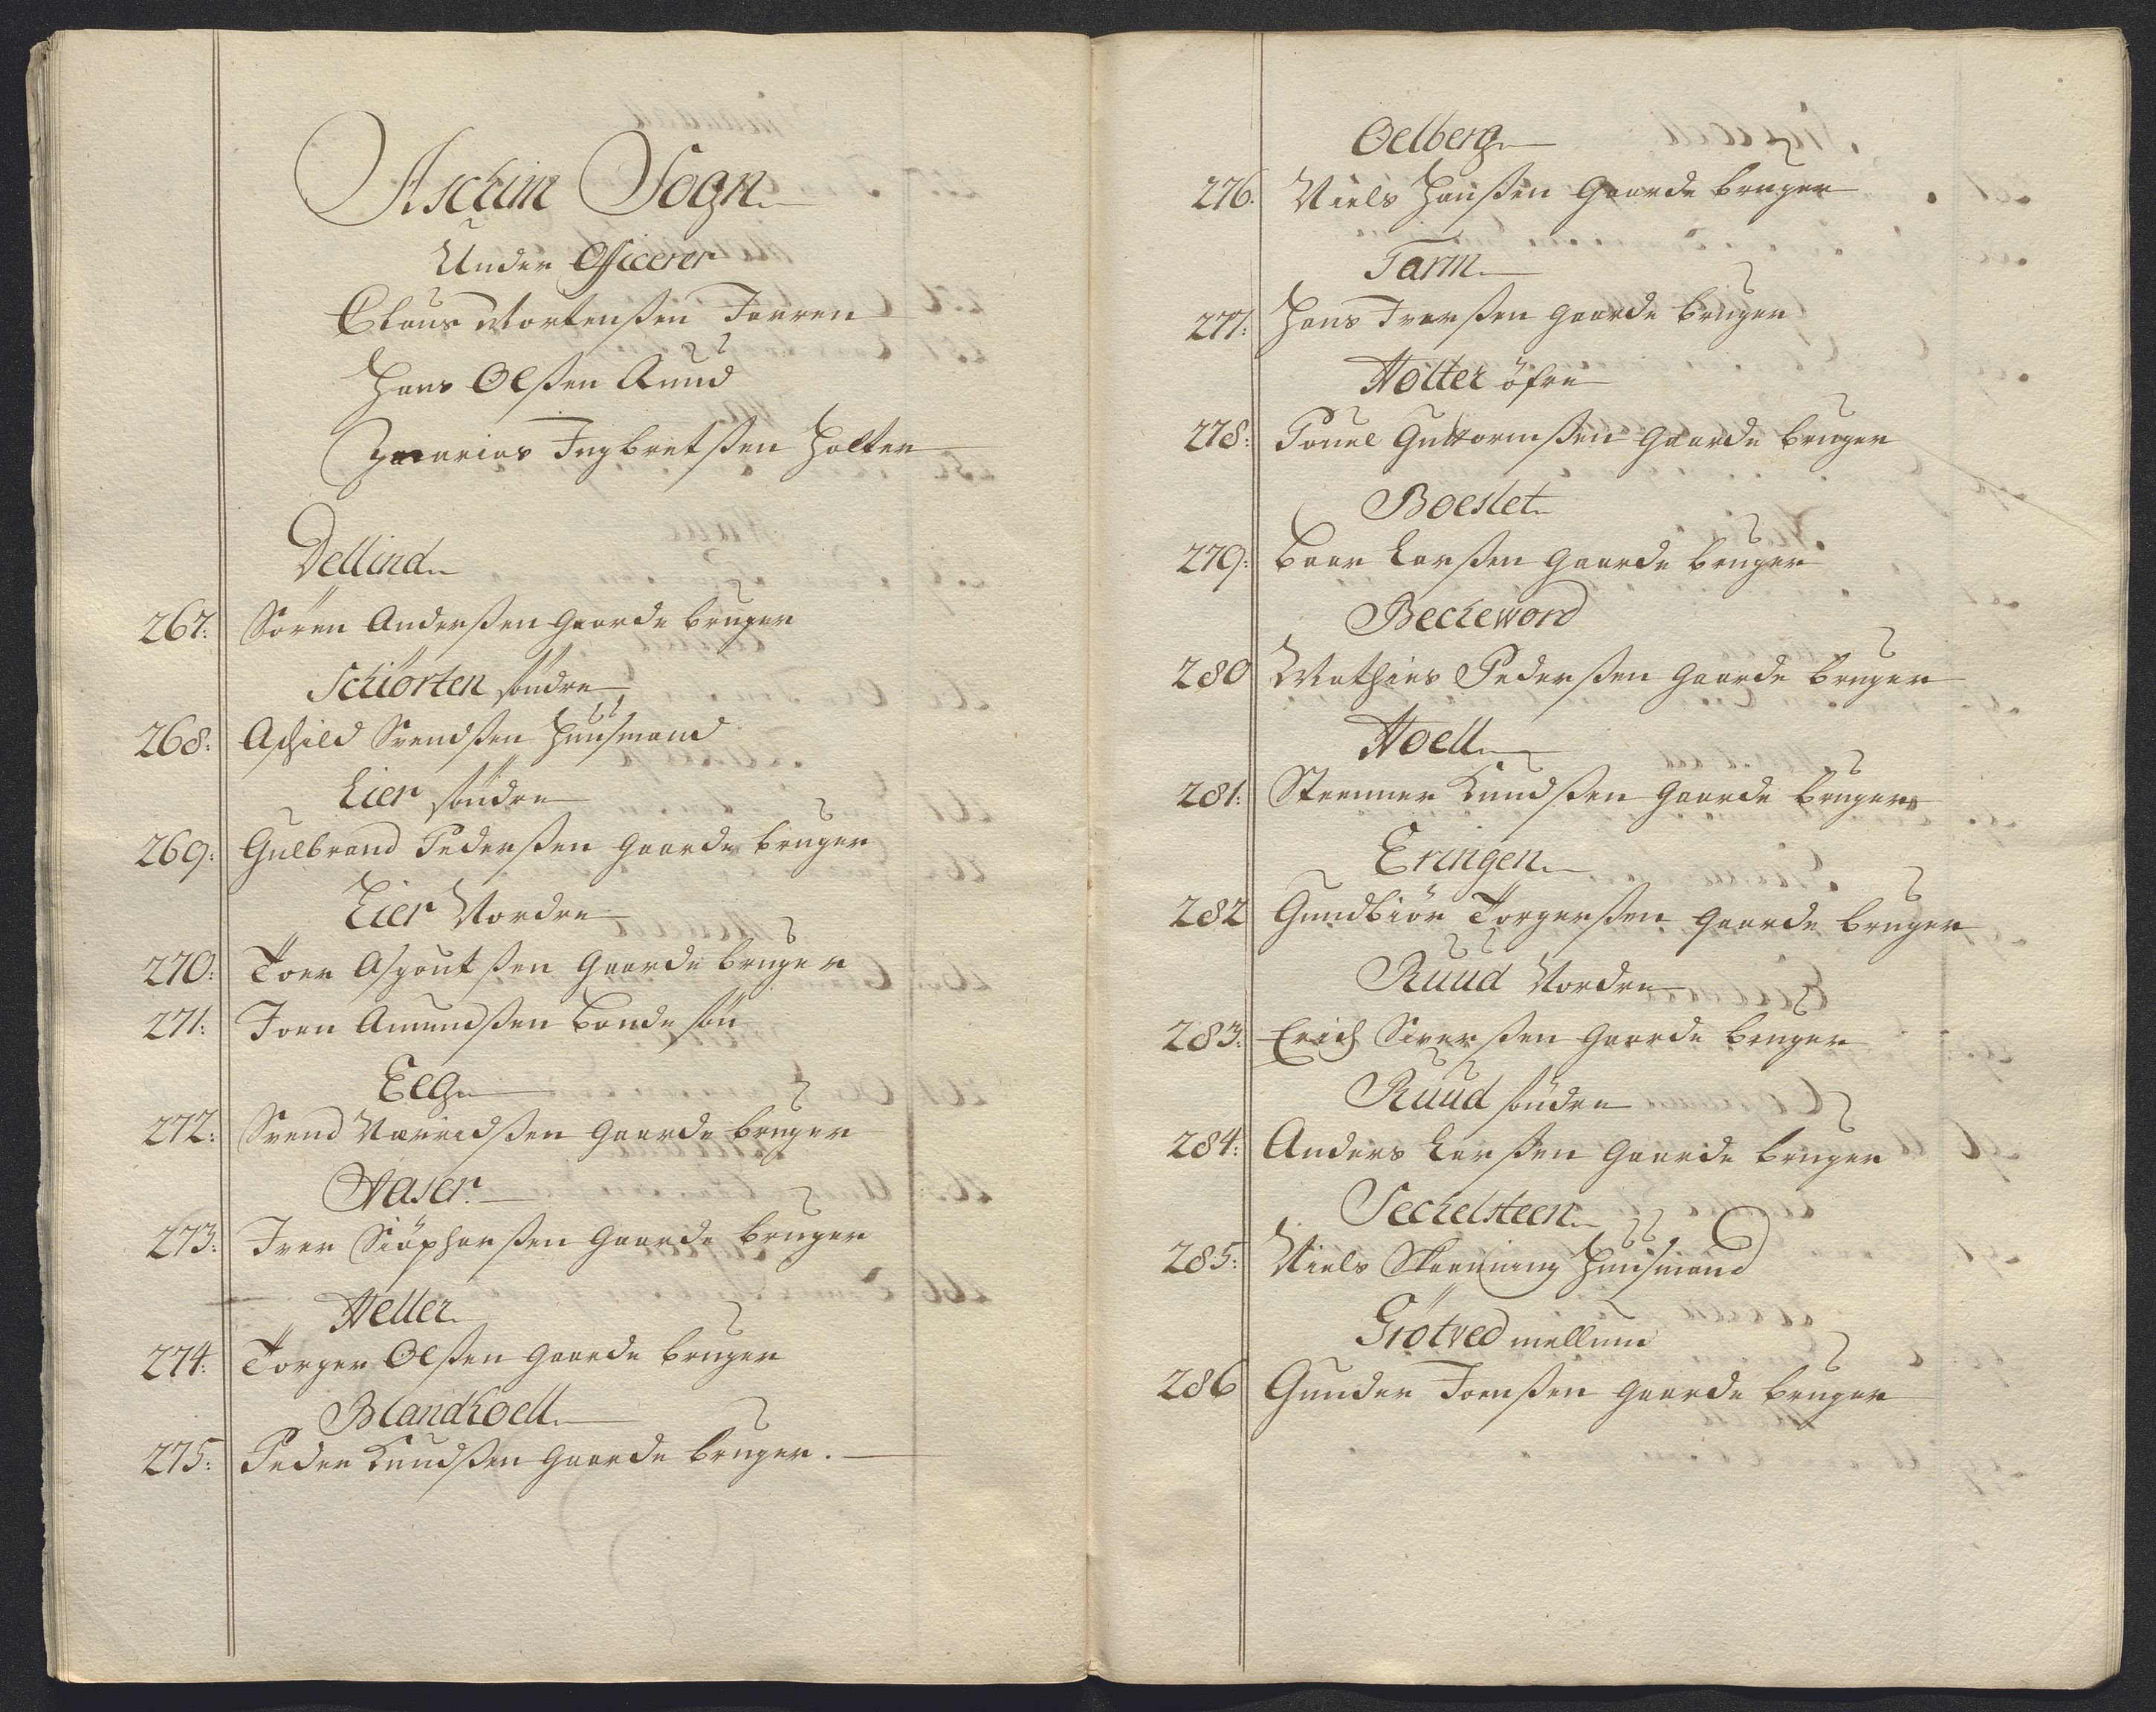 Aschim Sogn
Under Officerer
Claus Mortenßen Torren
Hans Olßen Ruud
Zacarias Ingbretßen Holter
Dellind
267: Sören Anderßen Gaarde bruger
Schiörten söndre
268: Aschild Svendßen Huusmand
Lier söndre
269: Gulbrand Pederßen gaarde bruger
Lier Nordre
270: Toer Asgoutßen Gaarde bruger
271: Joen Amundßen Bonde sön
Eeg
272: Svend Navridßen Gaarde bruger
Haser
273: Iver Siöpharßen Gaarde bruger
Heller
274: Torger Olßen gaarde bruger
Blandkoell
275: Peder Knudßen Gaarde bruger.
Oelberg
276. Niels Hanßen Gaarde bruger
Tarm
277: Hans Iverßen gaarde bruger
Holter öfre
278: Pouel Guttormßen Gaarde bruger
Boeslet
279: Baar Larßen Gaarde bruger
Beckeword
280 Mathies Pederßen gaarde bruger
Hoell
281: Steenner Knudßen Gaarde bruger
Eringen
282 Gundbiör Torgerßen gaarde bruger
Ruud Nordre
283: Erich Siverßen Gaarde bruger
Ruud söndre
284: Anders Larßen Gaarde bruger
Seckelsteen
285: Niels Huusmand
Giötved mellum
286 Gunder Joenßen gaarde bruger